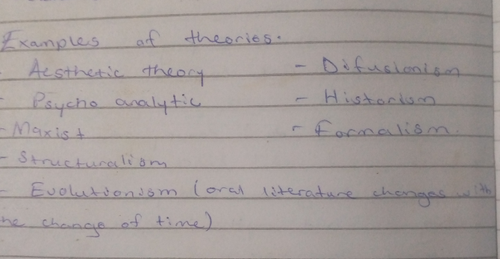 Examples of theories.
Aesthetic theory - Difusionism
- Psycho analytic - Historism
- Maxist - Formalism.
- Structuralism
- Evolutionism (oral literature changes with
the change of time)